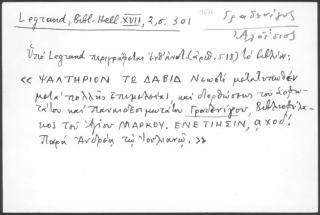 Legrand, Bibl. Hell. XVII, 2, σ. 301
Γραδενίγος
Ἀλοΐσιος
Ὑπό Legrand περιγράφεται ἐνθ' ἀνωτ. (ἀριθ. 518) τὸ βιβλίον:
« ΨΑΛΤΗΡΙΟΝ ΤΩ ΔΑΒΙΔ Νεωστὶ μετατυπωθὲν
μετὰ πολλῆς ἐπιμελείας, καὶ διορθώσεως τοῦ Σοφω-
τάτου καὶ Παναιδεσιμωτάτου Γραδενίγου, Βιβλιοφύλα-
κος τοῦ Ἁγίου ΜΑΡΚΟΥ. ΕΝΕΤΙΗΣΙΝ, αχοδ'.
Παρὰ Ἀνδρέᾳ τῷ Ἰουλιανῷ. »